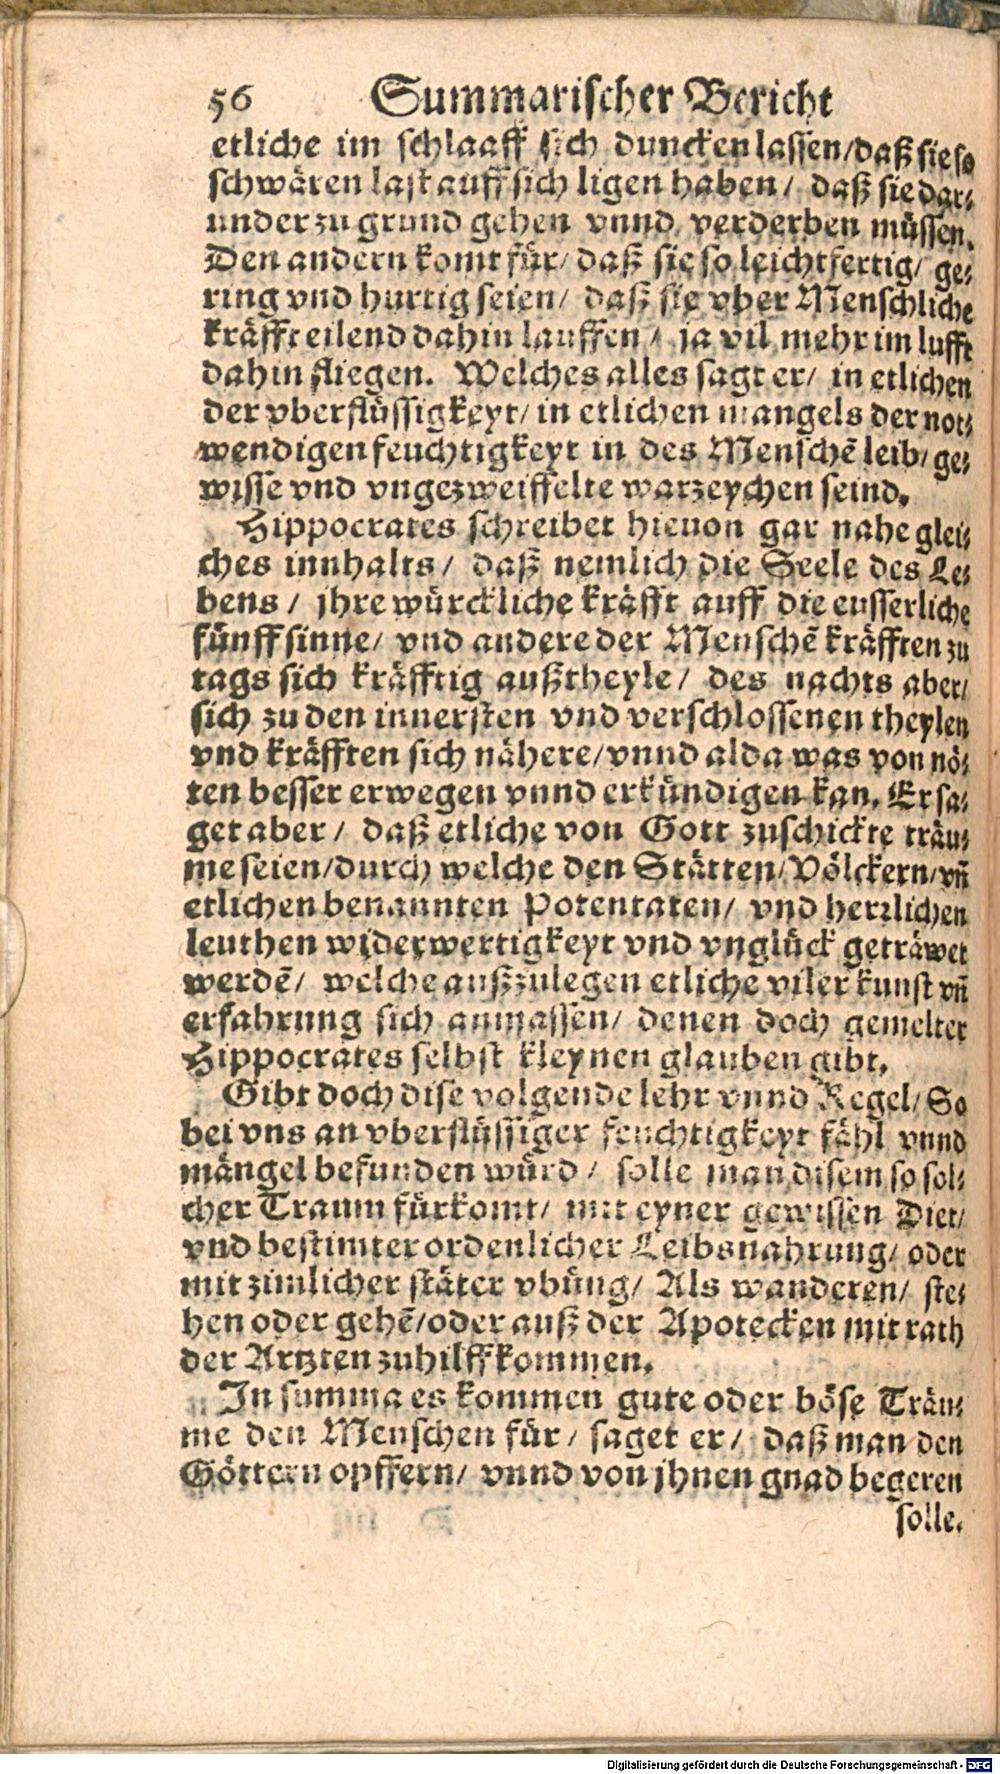 56 Summarischer Bericht
etliche im schlaaff sich duncken lassen/daß sie so
schwären last auff sich ligen haben/ daß sie dar⸗
under zu grund gehen vnnd verderben müssen.
Den andern komt für/ daß sie so leichtfertig/ ge⸗
ring vnd hurtig seien/ daß sie vber Menschliche
kräfft eilend dahin lauffen/ ja vil mehr im lufft
dahin fliegen. Welches alles sagt er/ in etlichen
der vberflüssigkeyt/ in etlichen mangels der not⸗
wendigen feuchtigkeyt in des Menschẽ leib/ ge⸗
wisse vnd vngezweiffelte warzeychen seind.
Hippocrates schreibet hieuon gar nahe glei⸗
ches innhalts/ daß nemlich die Seele des Le⸗
bens/ jhre würckliche kräfft auff die eusserliche
fünff sinne/ vnd andere der Menschẽ kräfften zu
tags sich kräfftig außtheyle/ des nachts aber/
sich zu den innersten vnd verschlossenen theylen
vnd kräfften sich nähere/vnnd alda was von nö⸗
ten besser erwegen vnnd erkündigen kan. Er sa⸗
get aber/ daß etliche von Gott zuschickte träu⸗
me seien/durch welche den Stätten/Völckern/vñ
etlichen benannten Potentaten/ vnd herꝛlichen
leuthen widerwertigkeyt vnd vnglück geträwet
werdẽ/ welche außzulegen etliche viler kunst vñ
erfahrung sich anmassen/ denen doch gemelter
Hippocrates selbst kleynen glauben gibt.
Gibt doch dise volgende lehr vnnd Regel/ So
bei vns an vberflüssiger feuchtigkeyt fähl vnnd
mängel befunden würd/ solle man disem so sol⸗
cher Traum fürkomt/ mit eyner gewissen Diet/
vnd bestimter ordenlicher Leibsnahrung/ oder
mit zimlicher stäter vbung/ Als wanderen/ ste⸗
hen oder gehẽ/oder auß der Apotecken mit rath
der Artzten zuhilff kommen.
In summa es kommen gute oder böse Träu⸗
me den Menschen für/ saget er/ daß man den
Göttern opffern/ vnnd von jhnen gnad begeren
solle.
Digitalisierung gefördert durch die Deutsche Forschungsgemeinschaft - DFG